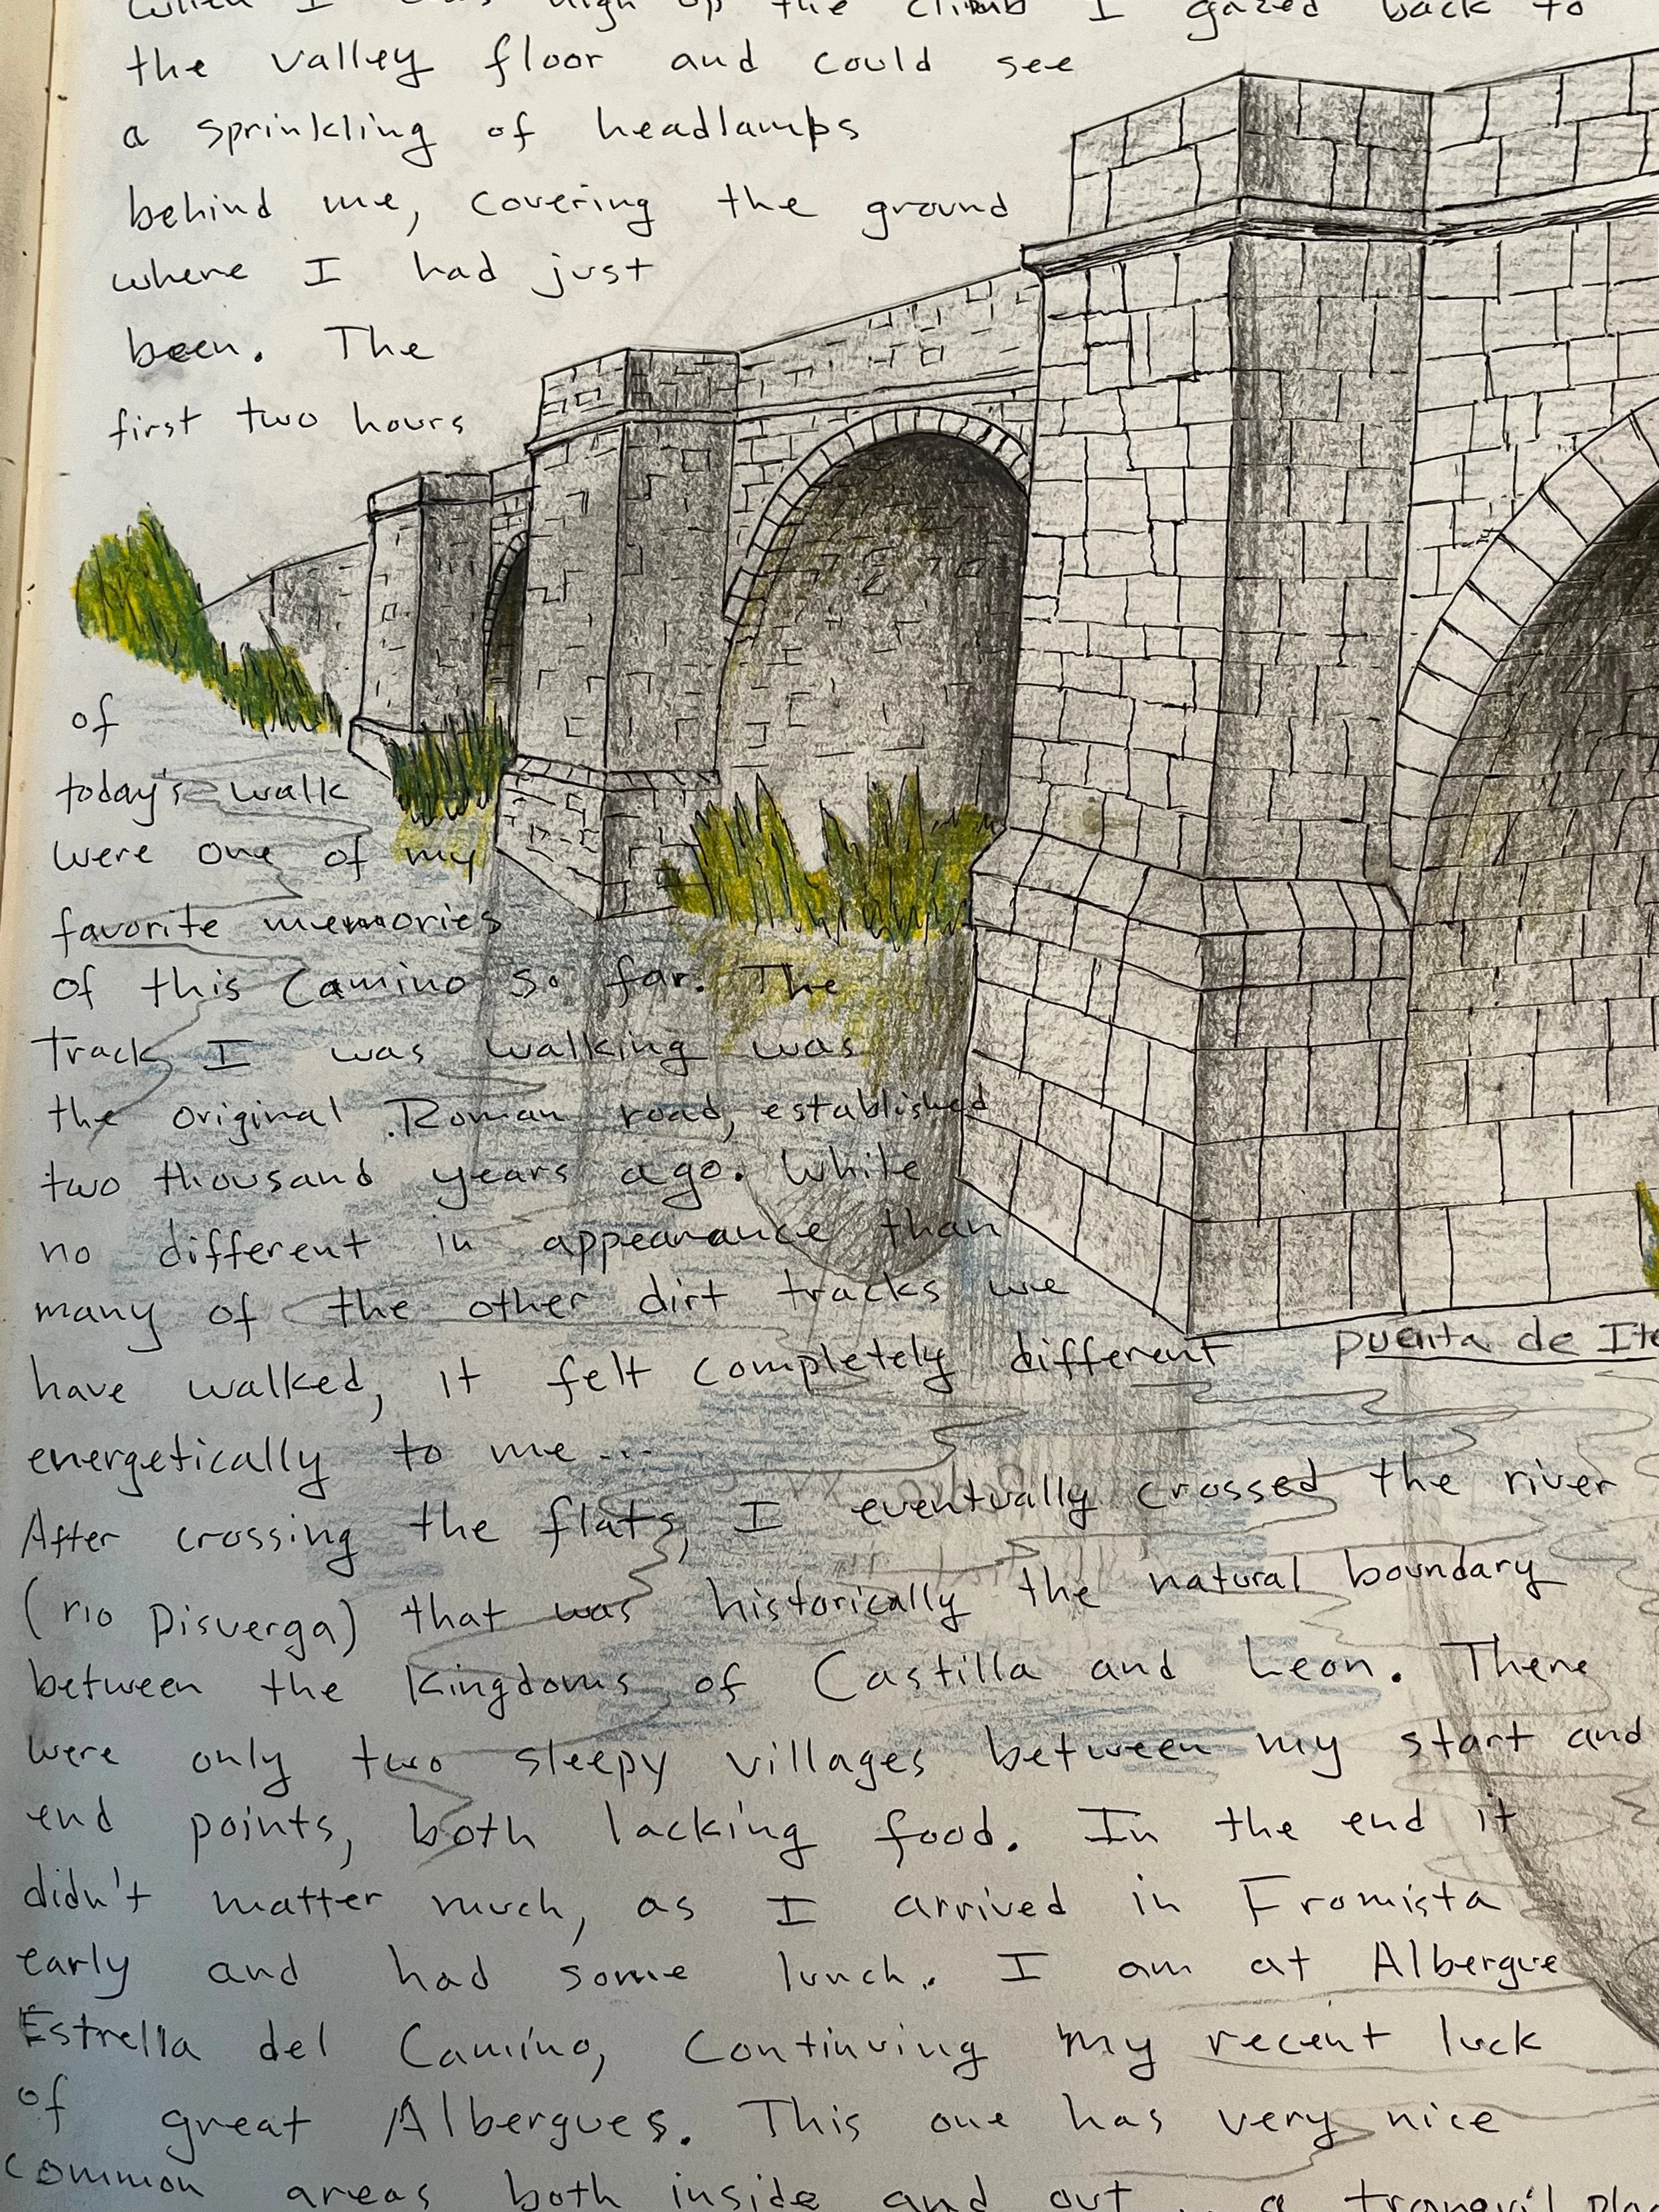 When I was high up the climb I gazed back to
the valley floor and could see
a sprinkling of headlamps
behind me, covering the ground
where I had just
been. The
first two hours
of
today's walk
were one of my
favorite memories
of this Camino so far. The
track I was walking was
the original Roman road, established
two thousand years ago. While
no different in appearance than
many of the other dirt tracks we
have walked, it felt completely different
puenta de Ite
energetically to me...
After crossing the flats, I eventually crossed the river
(rio Pisuerga) that was historically the natural boundary
between the kingdoms of Castilla and Leon. There
were only two sleepy villages between my start and
end points, both lacking food. In the end it
didn't matter much, as I arrived in Fromista
early and had some lunch. I am at Albergue
Estrella del Camino, continuing my recent luck
of great Albergues. This one has very nice
common areas both inside and out.. a tranquil